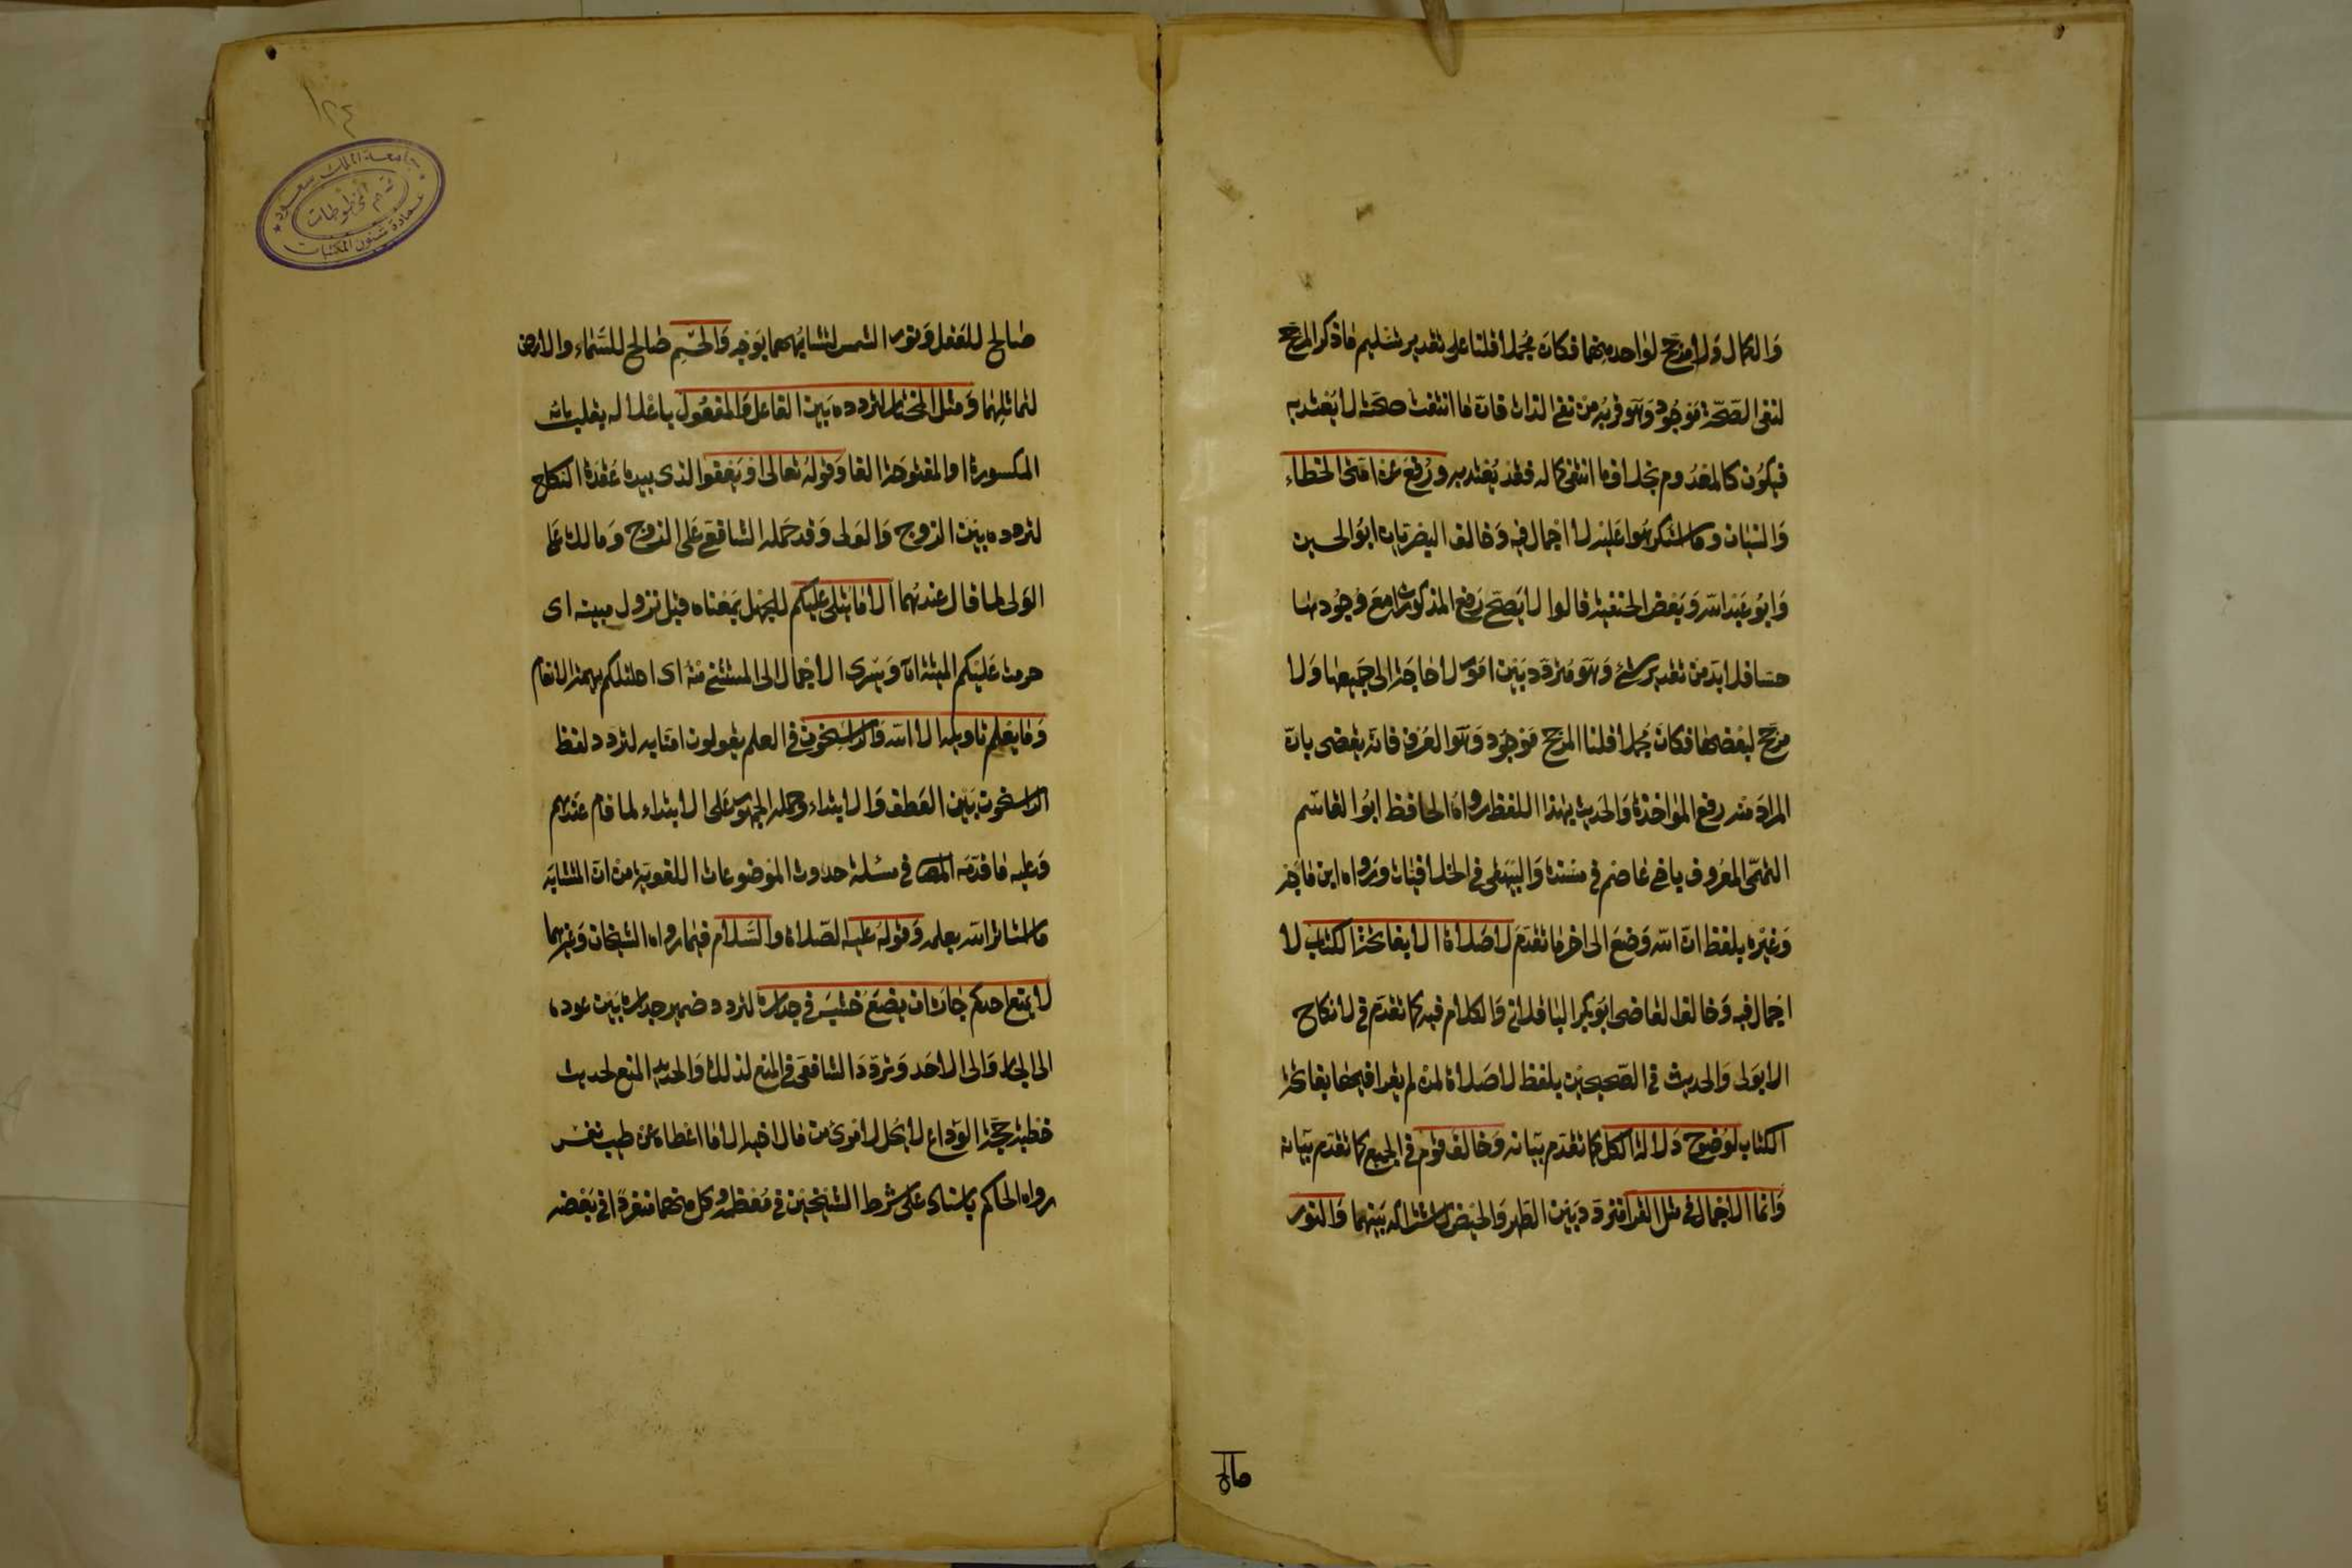 والكمال ولا مرجح لواحد منهما فكان مجملا قلنا على تقدير تسليم ماذكر المرجح
لنفى الصحة موجود وهو قربه من نفى الذات فان ما انتفت صحته لا يعتد به
فيكون كالمعدوم بخلاف ما انتفى كماله فقد يعتد به ورفع عن امتى الخطاء
والنسيان وما استكرهوا عليه لا اجمال فيه وخالف البصريان ابو الحسين
وابو عبد الله وبعض الحنفية قالوا لا يصح رفع المذكورات مع وجودها
حسا فلا بد من تقدير شئ وهو متردد بين امور لا حاجة الى جميعها ولا
مرجح لبعضها فكان مجملا قلنا المرجح موجود وهو العرف فانه يقضى بان
المراد منه رفع المواخذة والحديث بهذا اللفظ رواه الحافظ ابو القاسم
التميمى المعروف باخى عاصم فى مسنده والبيهقى فى الخلافيات ورواه ابن ماجه
وغيره بلفظ ان الله وضع الى اخر ما تقدم لا صلاة الا بفاتحة الكتاب لا
اجمال فيه وخالف القاضى ابو بكر الباقلانى والكلام فيه كما تقدم فى لا نكاح
الا بولى والحديث فى الصحيحين بلفظ لا صلاة لمن لم يقرا فيها بفاتحة
الكتاب لوضوح دلالة الكل كما تقدم بيانه وخالف قوم فى الجميع كما تقدم بيانه
وانما الاجمال فى مثل القرا متردد بين الطهر والحيض لاشتراكه بينهما والنور
صالح
١٢٤
جامعة الملك سعود
قسم المخطوطات
عمادة شئون المكتبات
صالح للعقل ونور الشمس لتشابههما بوجه والجسم صالح للسماء والارض
لتماثلهما ومثل المختار لتردده بين الفاعل والمفعول باعلاله بقلب يائه
المكسورة او المفتوحة الفا وقوله تعالى او يعفو الذى بيده عقدة النكاح
لتردده بين الزوج والولى وقد حمله الشافعى على الزوج ومالك على
الولى لما قال عندهما الا ما يتلى عليكم للجهل بمعناه قبل نزول مبينه اى
حرمت عليكم الميتة الآ ويسرى الاجمال الى المستثنى منه اى احلت لكم بهيمة الانعام
وما يعلم تاويله الا الله والراسخون فى العلم يقولون امنا به لتردد لفظ
الراسخون بين العطف والابتداء وحمله الجمهور على الابتداء لما قام عندهم
وعليه ما قدمه المص فى مسئلة حدوث الموضوعات اللغوية من ان المتشابه
ما استاثر الله بعلمه وقوله عليه الصلاة والسلام فيما رواه الشيخان وغيرهما
لا يمنع احدكم جاره ان يضع خشبة فى جداره لتردد ضمير جداره بين عوده
الى الجار والى الاحد وتردد الشافعى فى المنع لذلك والجديد المنع لحديث
خطبة حجة الوداع لا يحل لامرئ من مال اخيه الا ما اعطاه عن طيب نفس
رواه الحاكم باسناد على شرط الشيخين فى معظمه وكل منهما منفردا فى بعضه